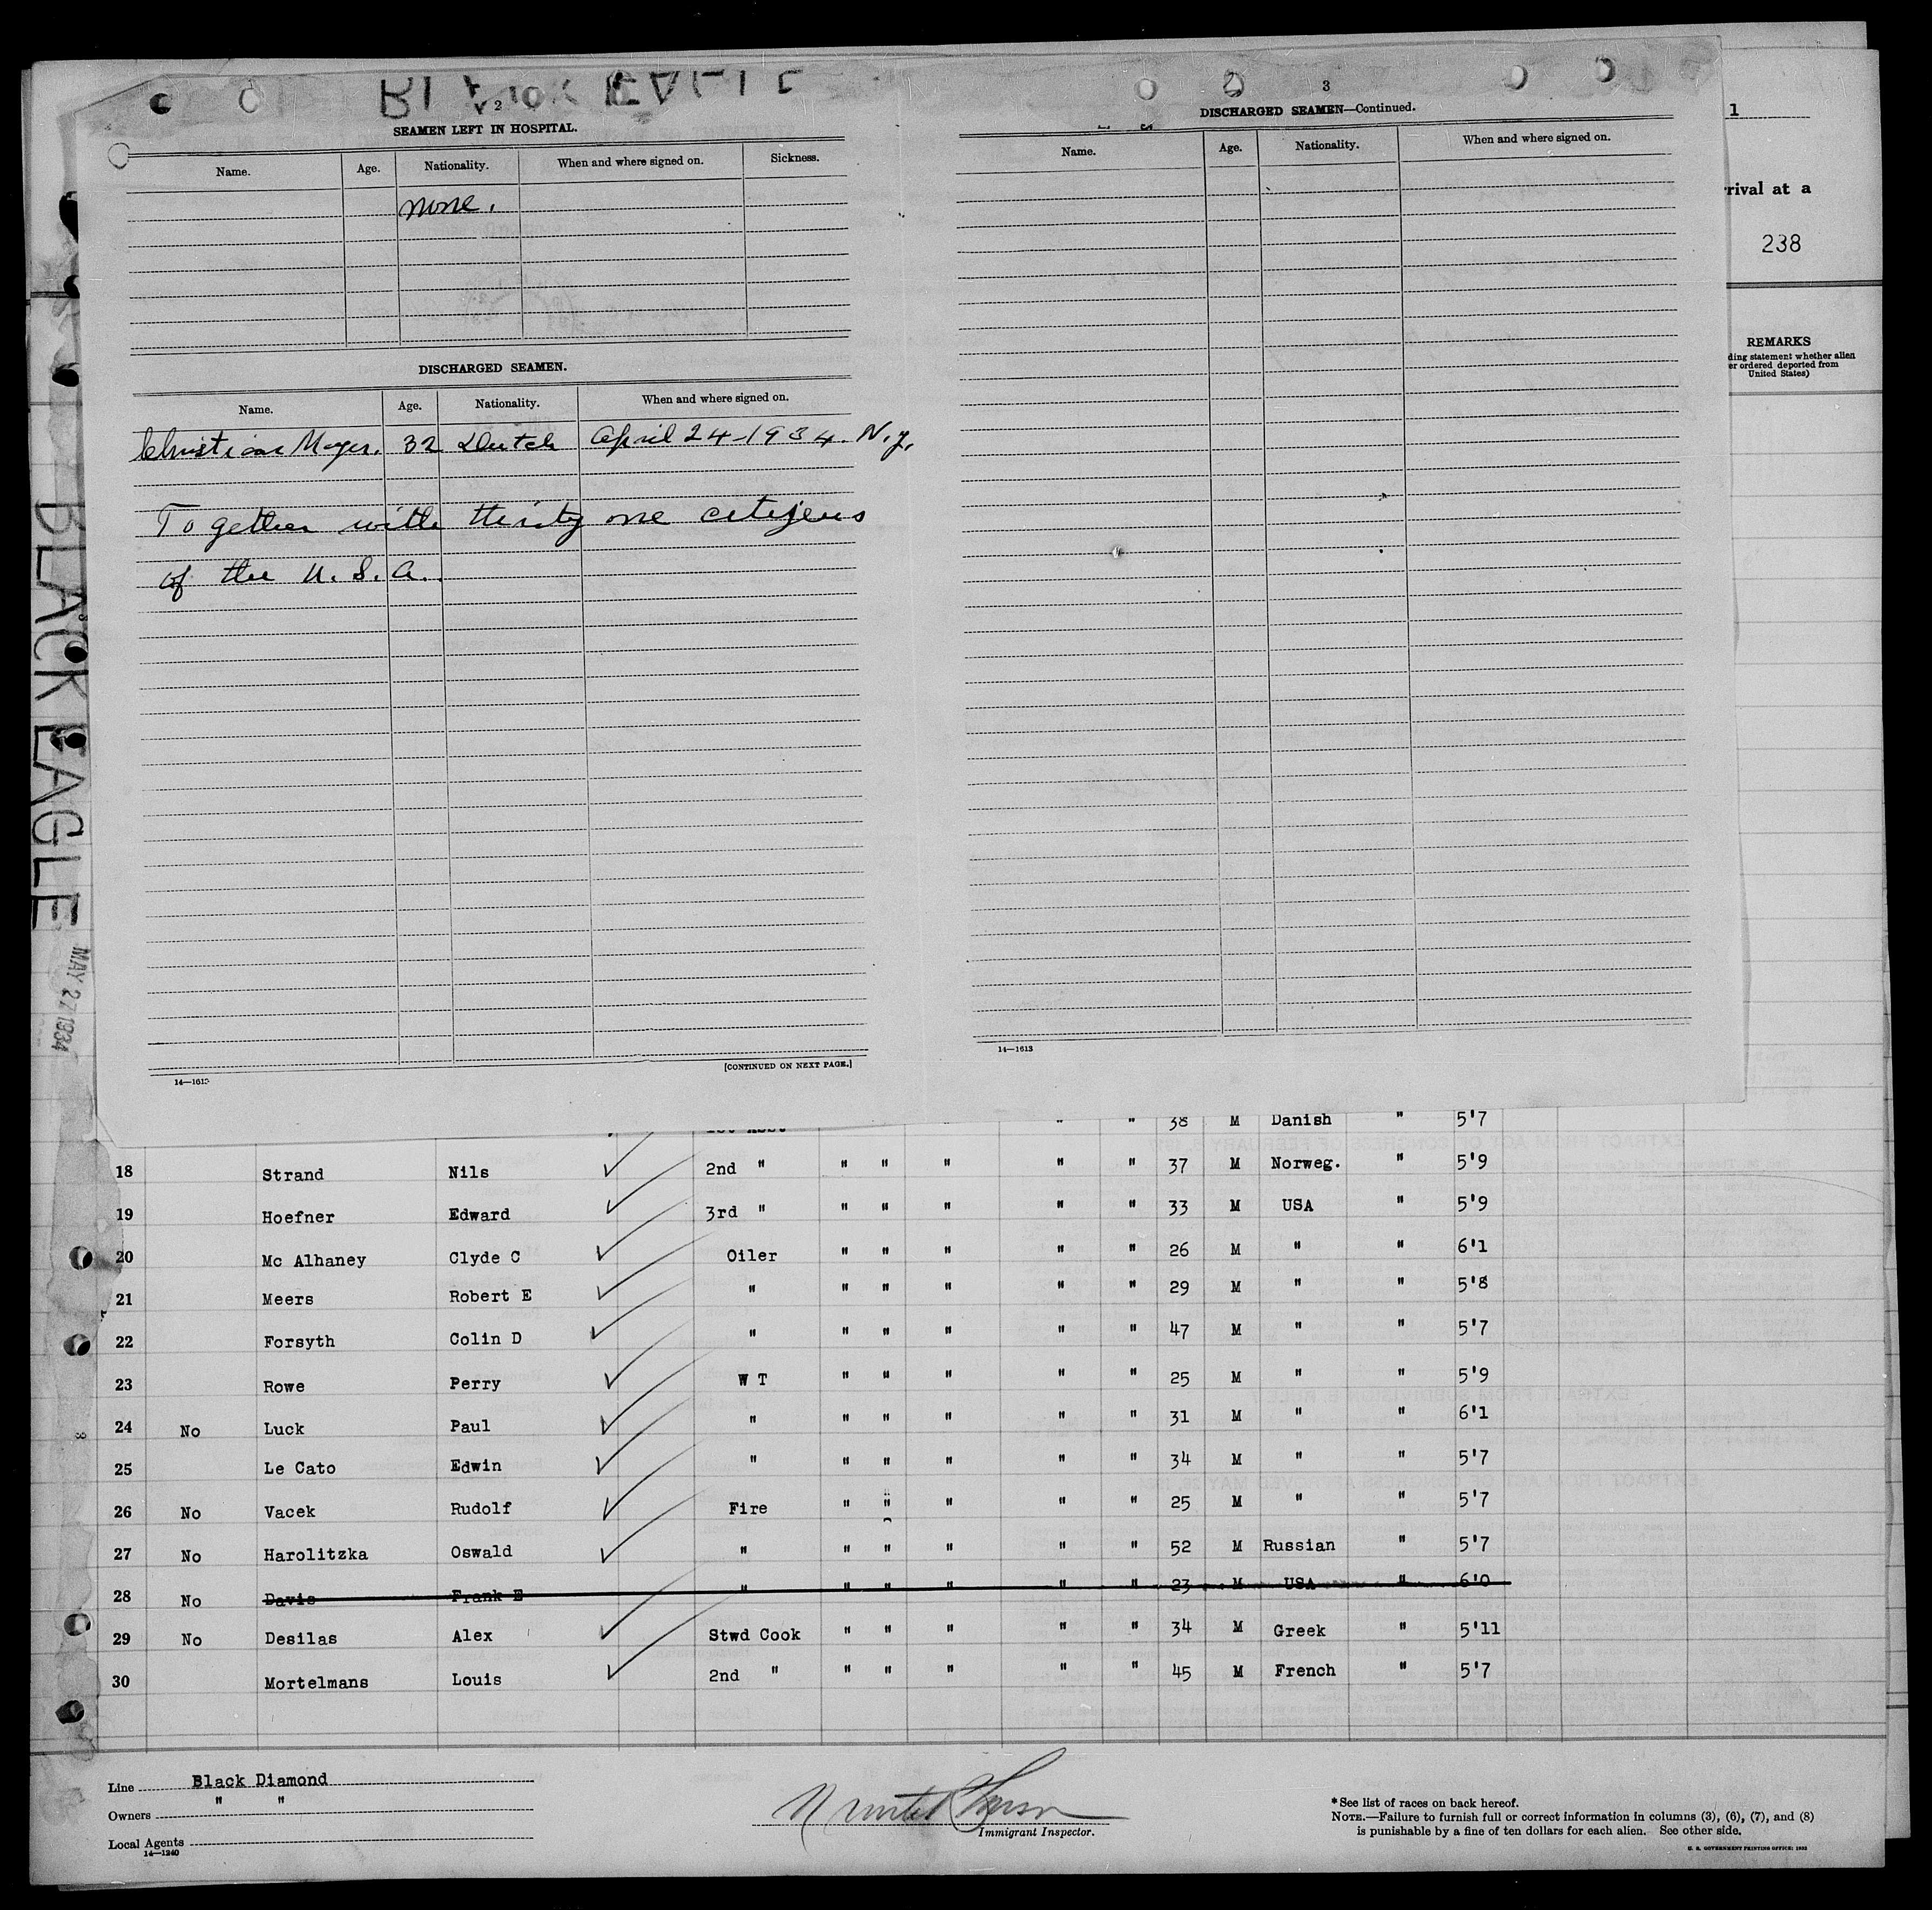 2
SEAMEN LEFT IN HOSPITAL.
Name. Age. Nationality. When and where signed on. Sickness.
none.
DISCHARGED SEAMEN.
Name. Age. Nationality. When and where signed on.
Christian Moyer. 32 Dutch April 24-1934. N.Y.
Together with thirty one citizens
of the U.S.A.
[CONTINUED ON NEXT PAGE.]
3
DISCHARGED SEAMEN—Continued.
Name. Age. Nationality. When and where signed on.
14—1613
1
rival at a
238
REMARKS
ding statement whether alien
er ordered deported from
United States)
BLACK EAGLE
MAY 27 1934
" " 38 M Danish " 5'7
18 Strand Nils 2nd " " " " " " 37 M Norweg. " 5'9
19 Hoefner Edward 3rd " " " " " " 33 M USA " 5'9
20 Mc Alhaney Clyde C Oiler " " " " " 26 M " " 6'1
21 Meers Robert E " " " " " " 29 M " " 5'8
22 Forsyth Colin D " " " " " " 47 M " " 5'7
23 Rowe Perry W T " " " " " 25 M " " 5'9
24 No Luck Paul " " " " " " 31 M " " 6'1
25 Le Cato Edwin " " " " " " 34 M " " 5'7
26 No Vacek Rudolf Fire " " " " " 25 M " " 5'7
27 No Harolitzka Oswald " " " " " " 52 M Russian " 5'7
28 No Davis Frank E " " " " " " 23 M USA " 6'0
29 No Desilas Alex Stwd Cook " " " " " 34 M Greek " 5'11
30 Mortelmans Louis 2nd " " " " " " 45 M French " 5'7
Line Black Diamond
Owners " "
Local Agents
14—1240
Immigrant Inspector.
*See list of races on back hereof.
NOTE.—Failure to furnish full or correct information in columns (3), (6), (7), and (8)
is punishable by a fine of ten dollars for each alien. See other side.
U. S. GOVERNMENT PRINTING OFFICE: 1933